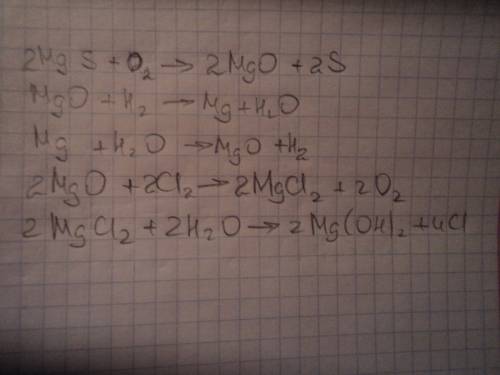 2MgS + O₂ → 2MgO + 2S
MgO + H₂ → Mg + H₂O
Mg + H₂O → MgO + H₂
2MgO + 2Cl₂ → 2MgCl₂ + 2O₂
2MgCl₂ + 2H₂O → 2Mg(OH)₂ + 4Cl